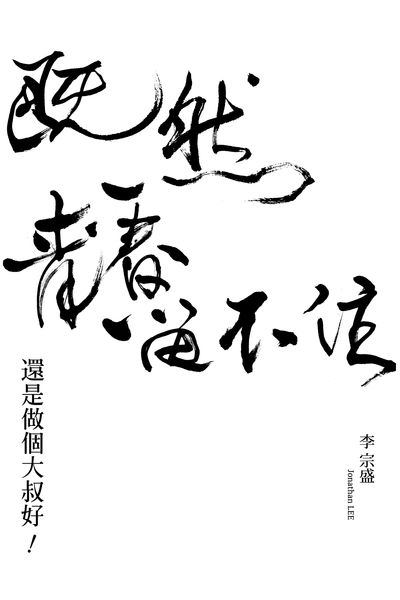 既然
青春留不住
還是做個大叔好！
李宗盛
Jonathan LEE